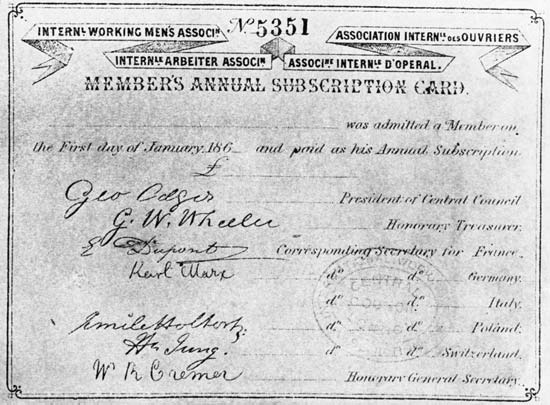 INTERNL WORKING MEN'S ASSOCIN
No 5351
ASSOCIATION INTERNLE DES OUVRIERS
INTERNLE ARBEITER ASSOCIN
ASSOCINE INTERNLE D'OPERAI.
MEMBER'S ANNUAL SUBSCRIPTION CARD.
was admitted a Member on
the First day of January 186 and paid as his Annual Subscription
£
Geo Odger President of Central Council
G. W. Wheeler Honorary Treasurer.
E Dupont Corresponding Secretary for France.
Karl Marx do do Germany.
do do Italy.
Emile Holtorp do do Poland.
Hn Jung. do do Switzerland.
W R Cremer Honorary General Secretary.